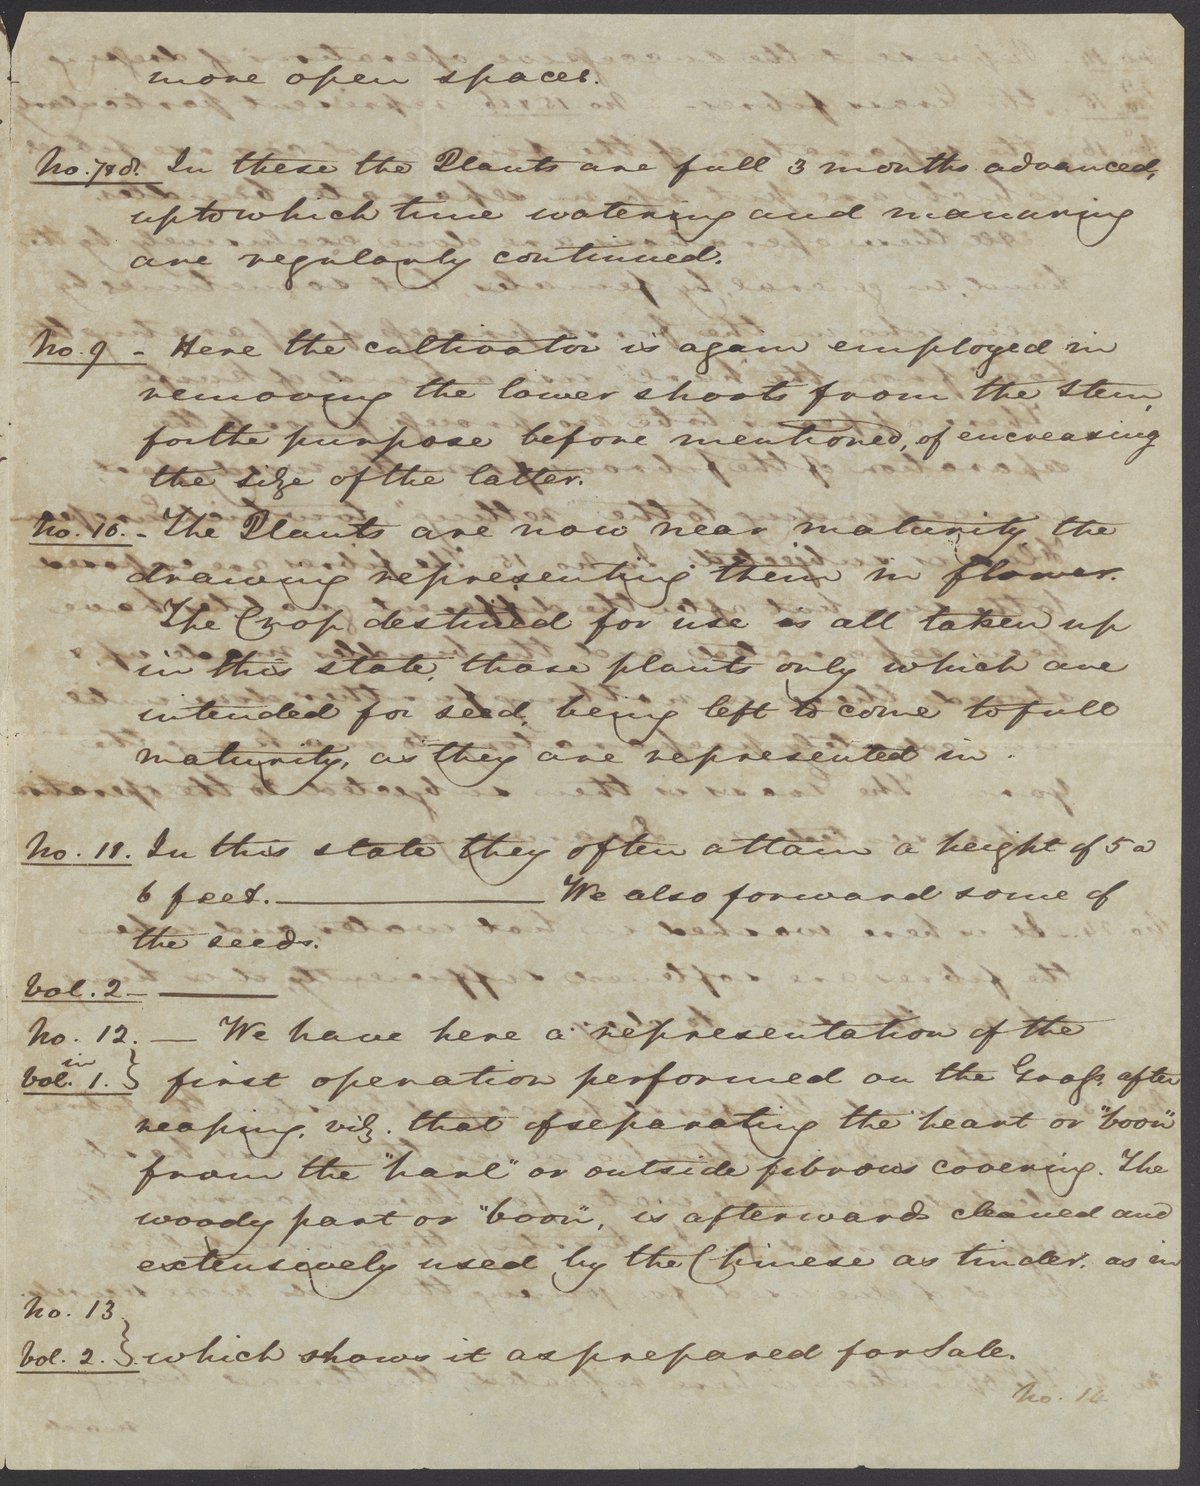 more open spaces.
No. 7 & 8. In these the Plants are full 3 months advanced,
up to which time watering and manuring
are regularly continued.
No. 9 - Here the cultivator is again employed in
removing the lower shoots from the stem,
for the purpose before mentioned, of encreasing
the size of the latter.
No. 10. - The Plants are now near maturity, the
drawing representing them in flower.
The Crop destined for use is all taken up
in this state, those plants only which are
intended for seed, being left to come to full
maturity, as they are represented in.
No. 11. In this state they often attain a height of 5 a
6 feet. ——— We also forward some of
the seeds.
Vol. 2 — ———
No. 12. — We have here a representation of the
in
Vol. 1. } first operation performed on the Grass, after
reaping, viz. that of separating the heart or "boon"
from the "harl" or outside fibrous covering. The
woody part or "boon", is afterwards cleaned and
extensively used by the Chinese as tinder, as in
No. 13
Vol. 2. } which shows it as prepared for Sale.
No. 14